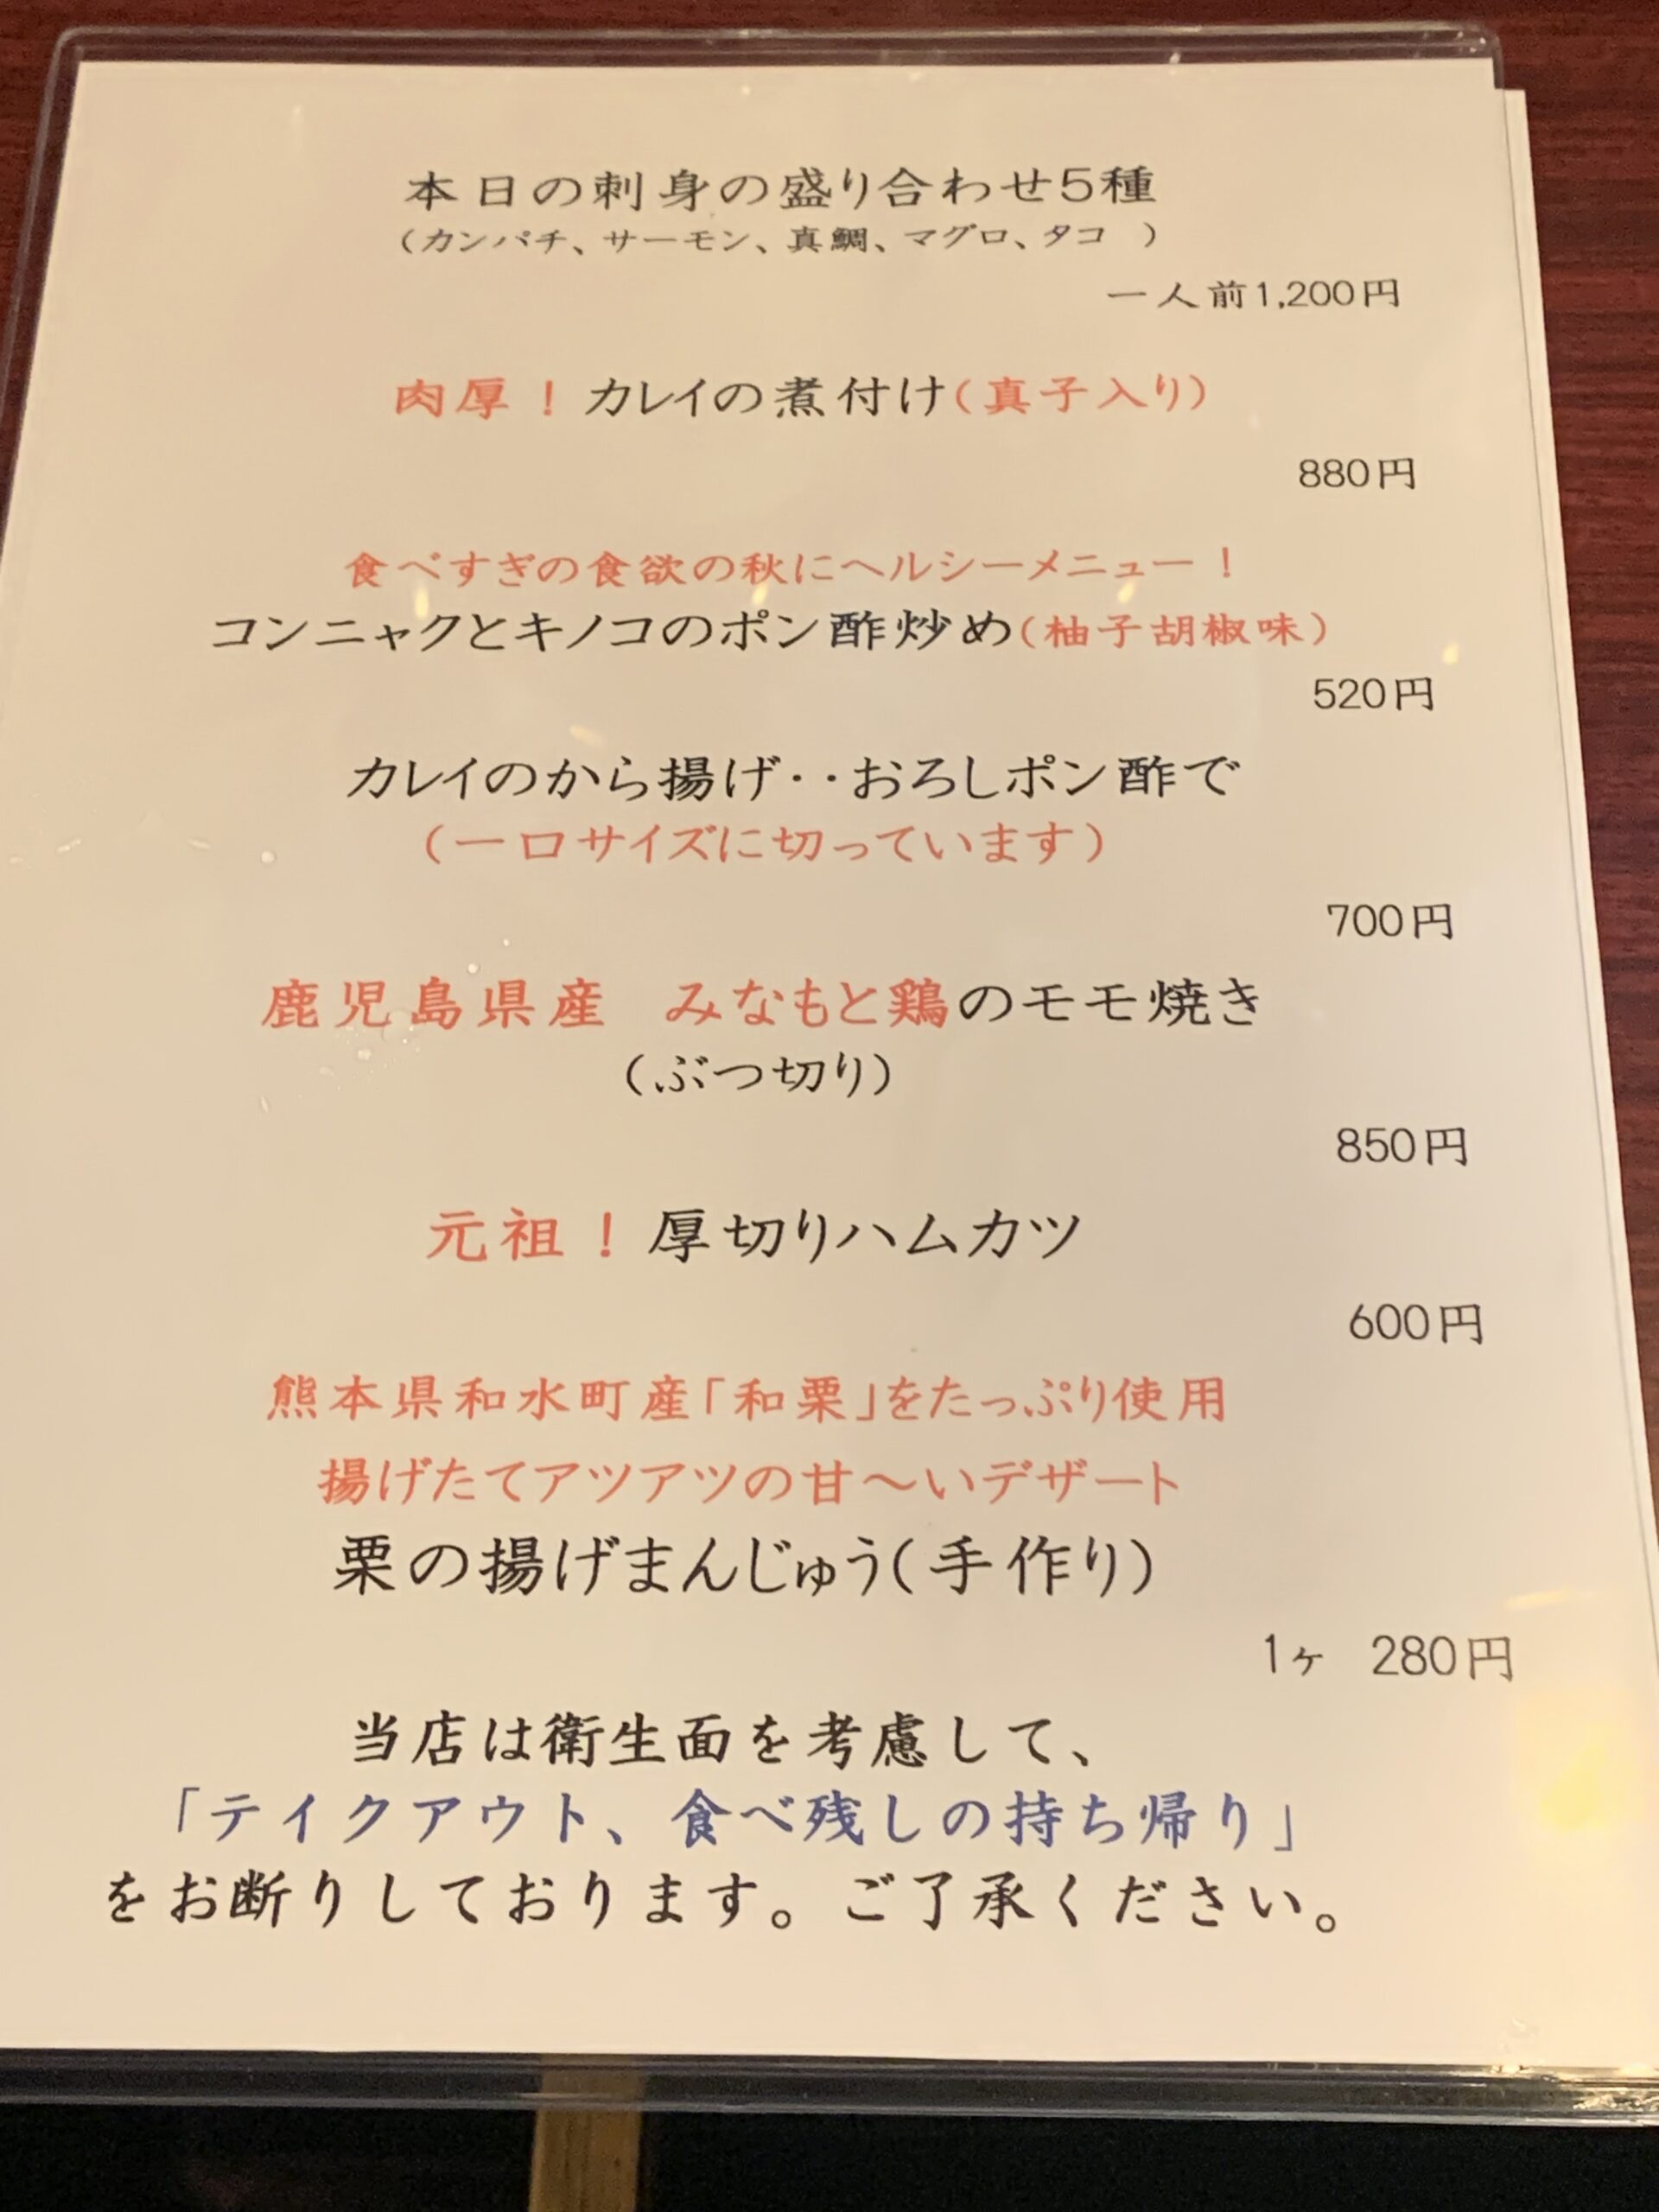 本日の刺身の盛り合わせ5種
（カンパチ、サーモン、真鯛、マグロ、タコ　）
一人前1,200円
肉厚！カレイの煮付け（真子入り）
880円
食べすぎの食欲の秋にヘルシーメニュー！
コンニャクとキノコのポン酢炒め（柚子胡椒味）
520円
カレイのから揚げ‥おろしポン酢で
（一口サイズに切っています）
700円
鹿児島県産　みなもと鶏のモモ焼き
（ぶつ切り）
850円
元祖！厚切りハムカツ
600円
熊本県和水町産「和栗」をたっぷり使用
揚げたてアツアツの甘～いデザート
栗の揚げまんじゅう（手作り）
1ヶ　280円
当店は衛生面を考慮して、
「テイクアウト、食べ残しの持ち帰り」
をお断りしております。ご了承ください。